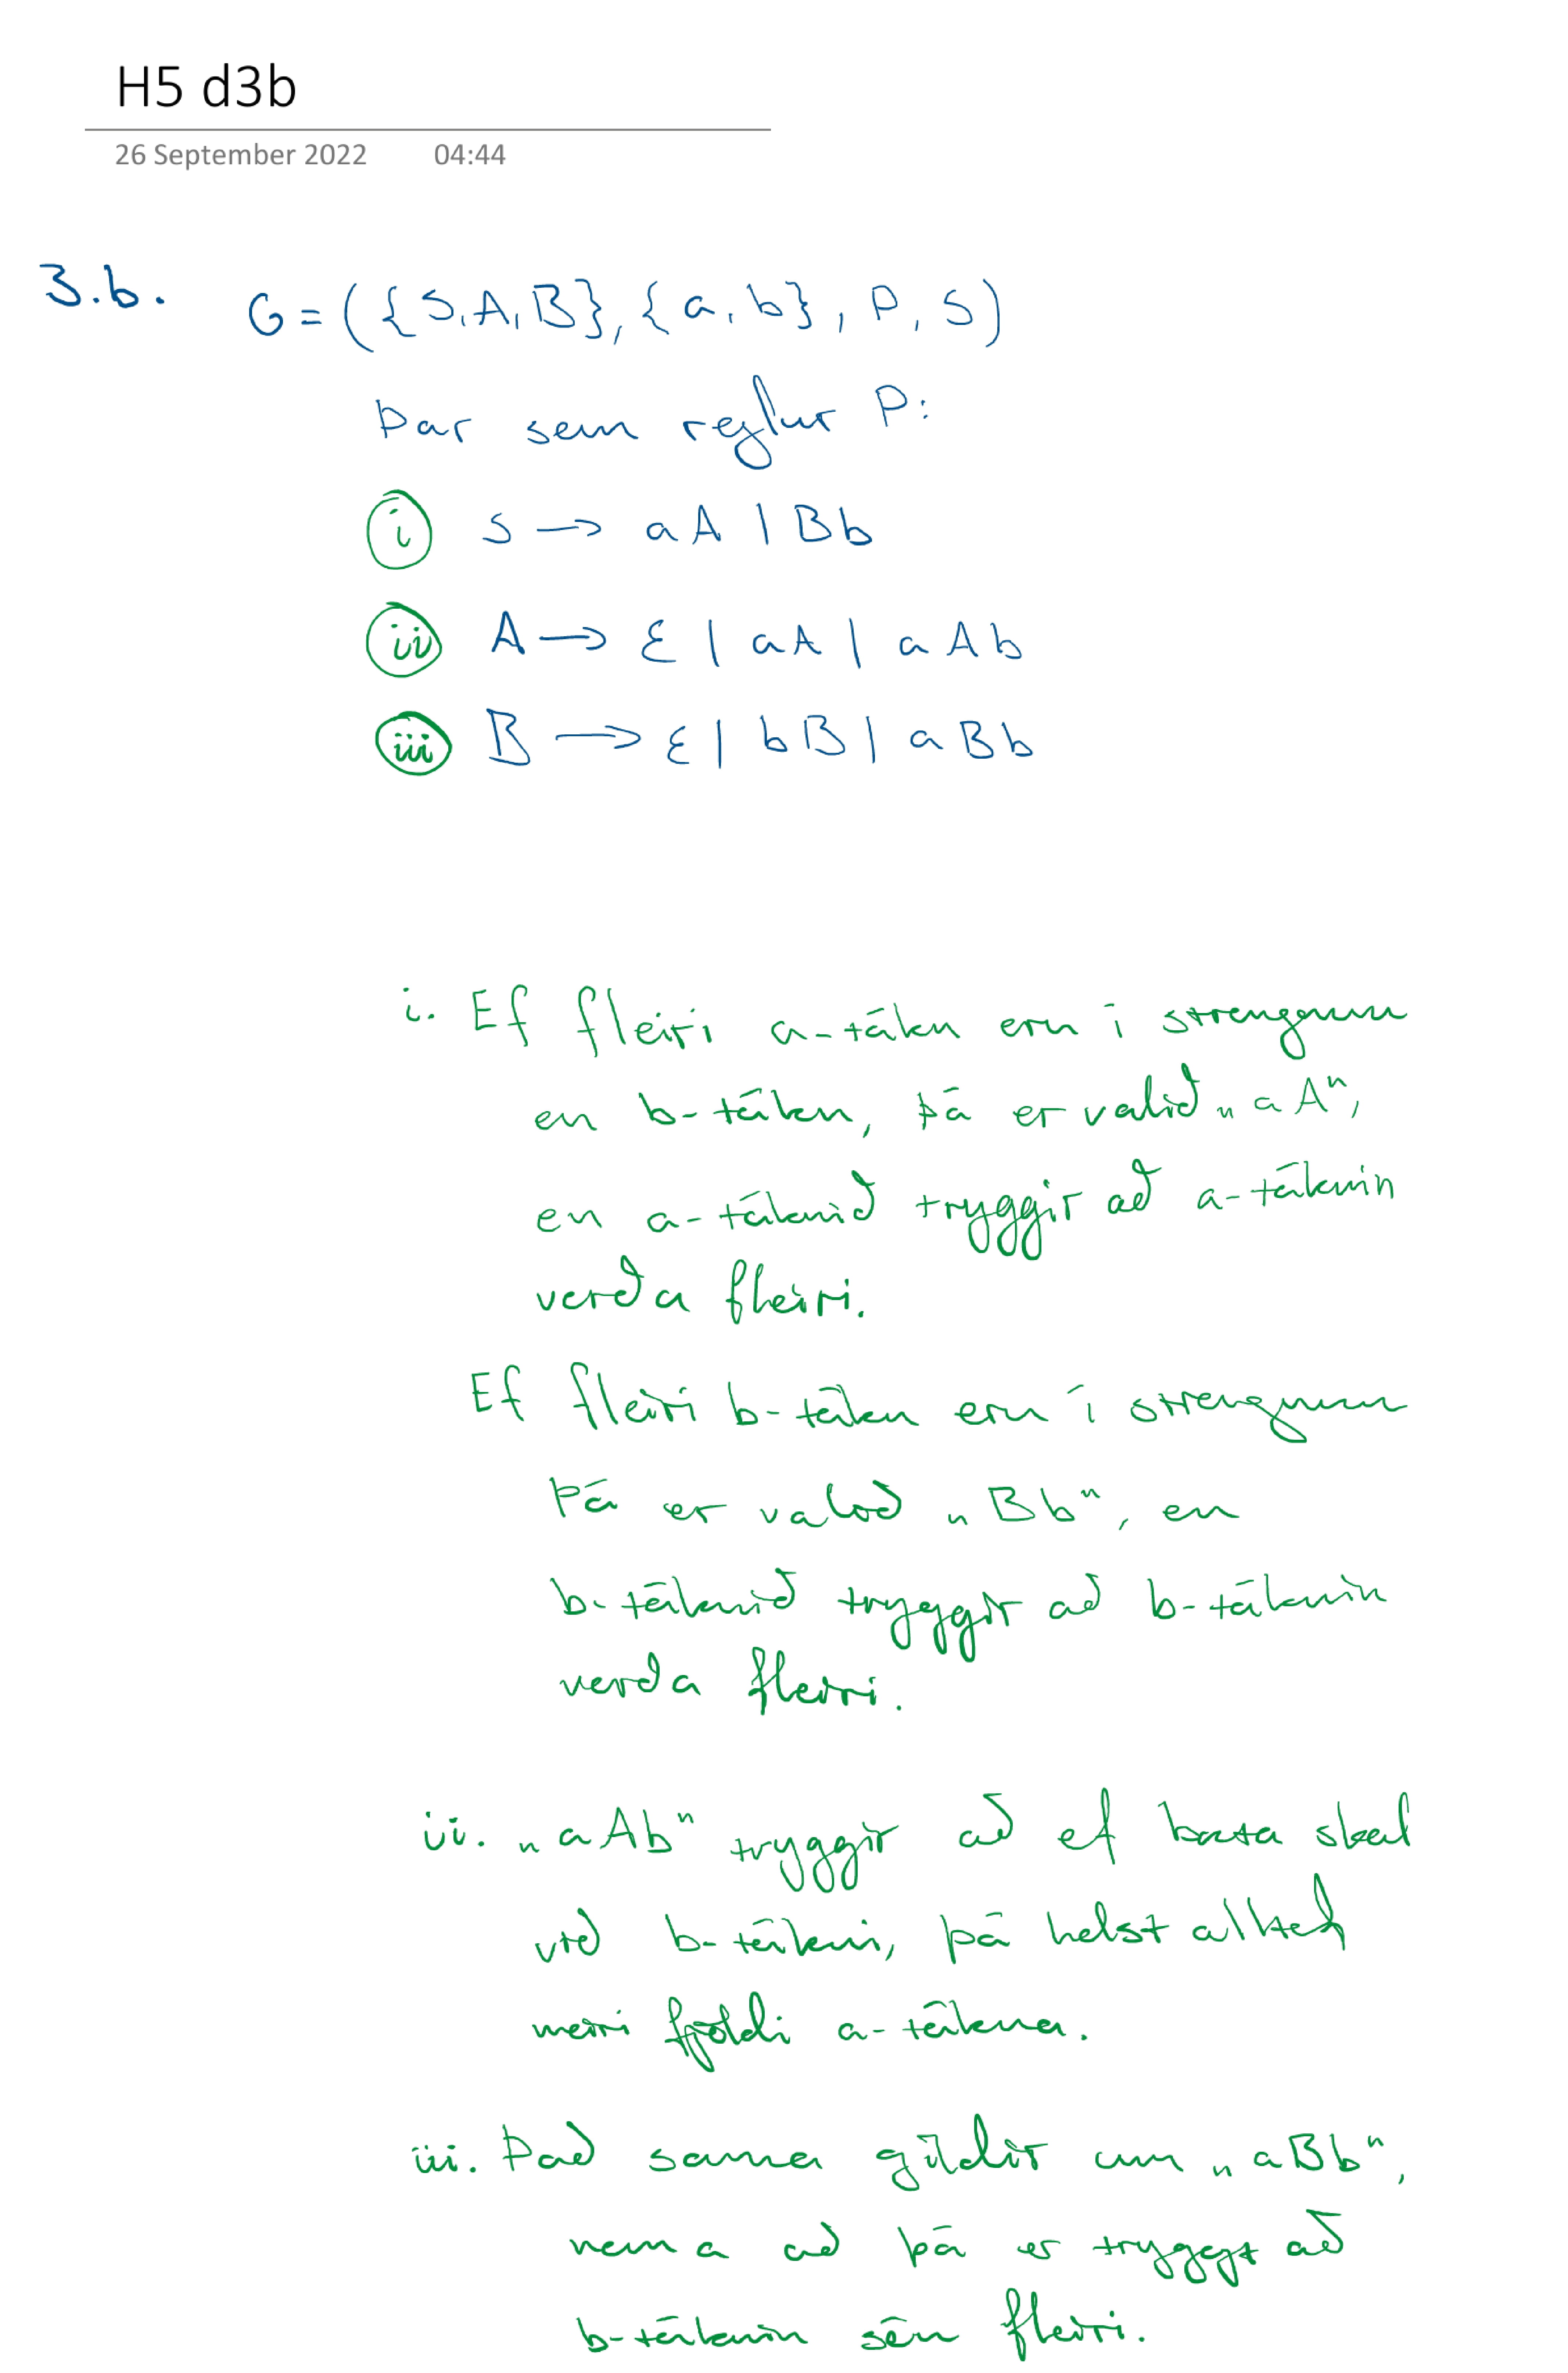 H5 d3b
26 September 2022 04:44
3.b. G = ({S,A,B}, {a,b}, P, S)
Þar sem reglur P:
i S → aA | Bb
ii A → ε | aA | aAb
iii B → ε | bB | aBb
i. Ef fleiri a-tákn eru í strengnum
en b-tákn, þá er valið „aA“,
en a-táknið tryggir að a-táknin
verða fleiri.
Ef fleiri b-tákn eru í strengnum
þá er valið „Bb“, en
b-táknið tryggir að b-táknin
verða fleiri.
ii. „aAb“ tryggir að ef bæta skal
við b-tákni, þá helst alltaf
meiri fjöldi a-tákna.
iii. Það sama gildir um „aBb“,
nema að þá er tryggt að
b-táknin séu fleiri.